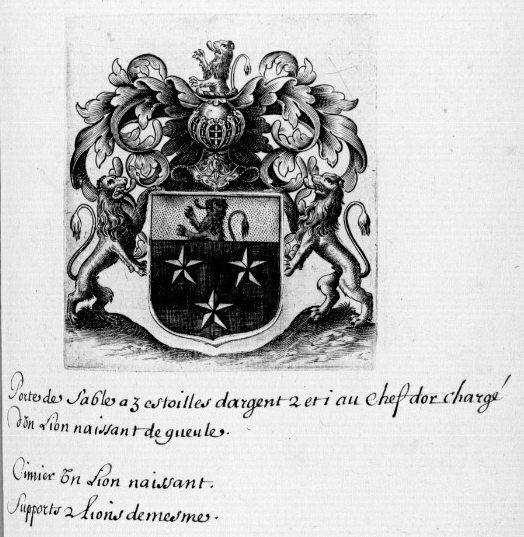 Porte de Sable a 3 estoilles dargent 2 et i au chef dor chargé
dun Lion naissant de gueule.
Cimier un Lion naissant.
Supports 2 lions demesme.